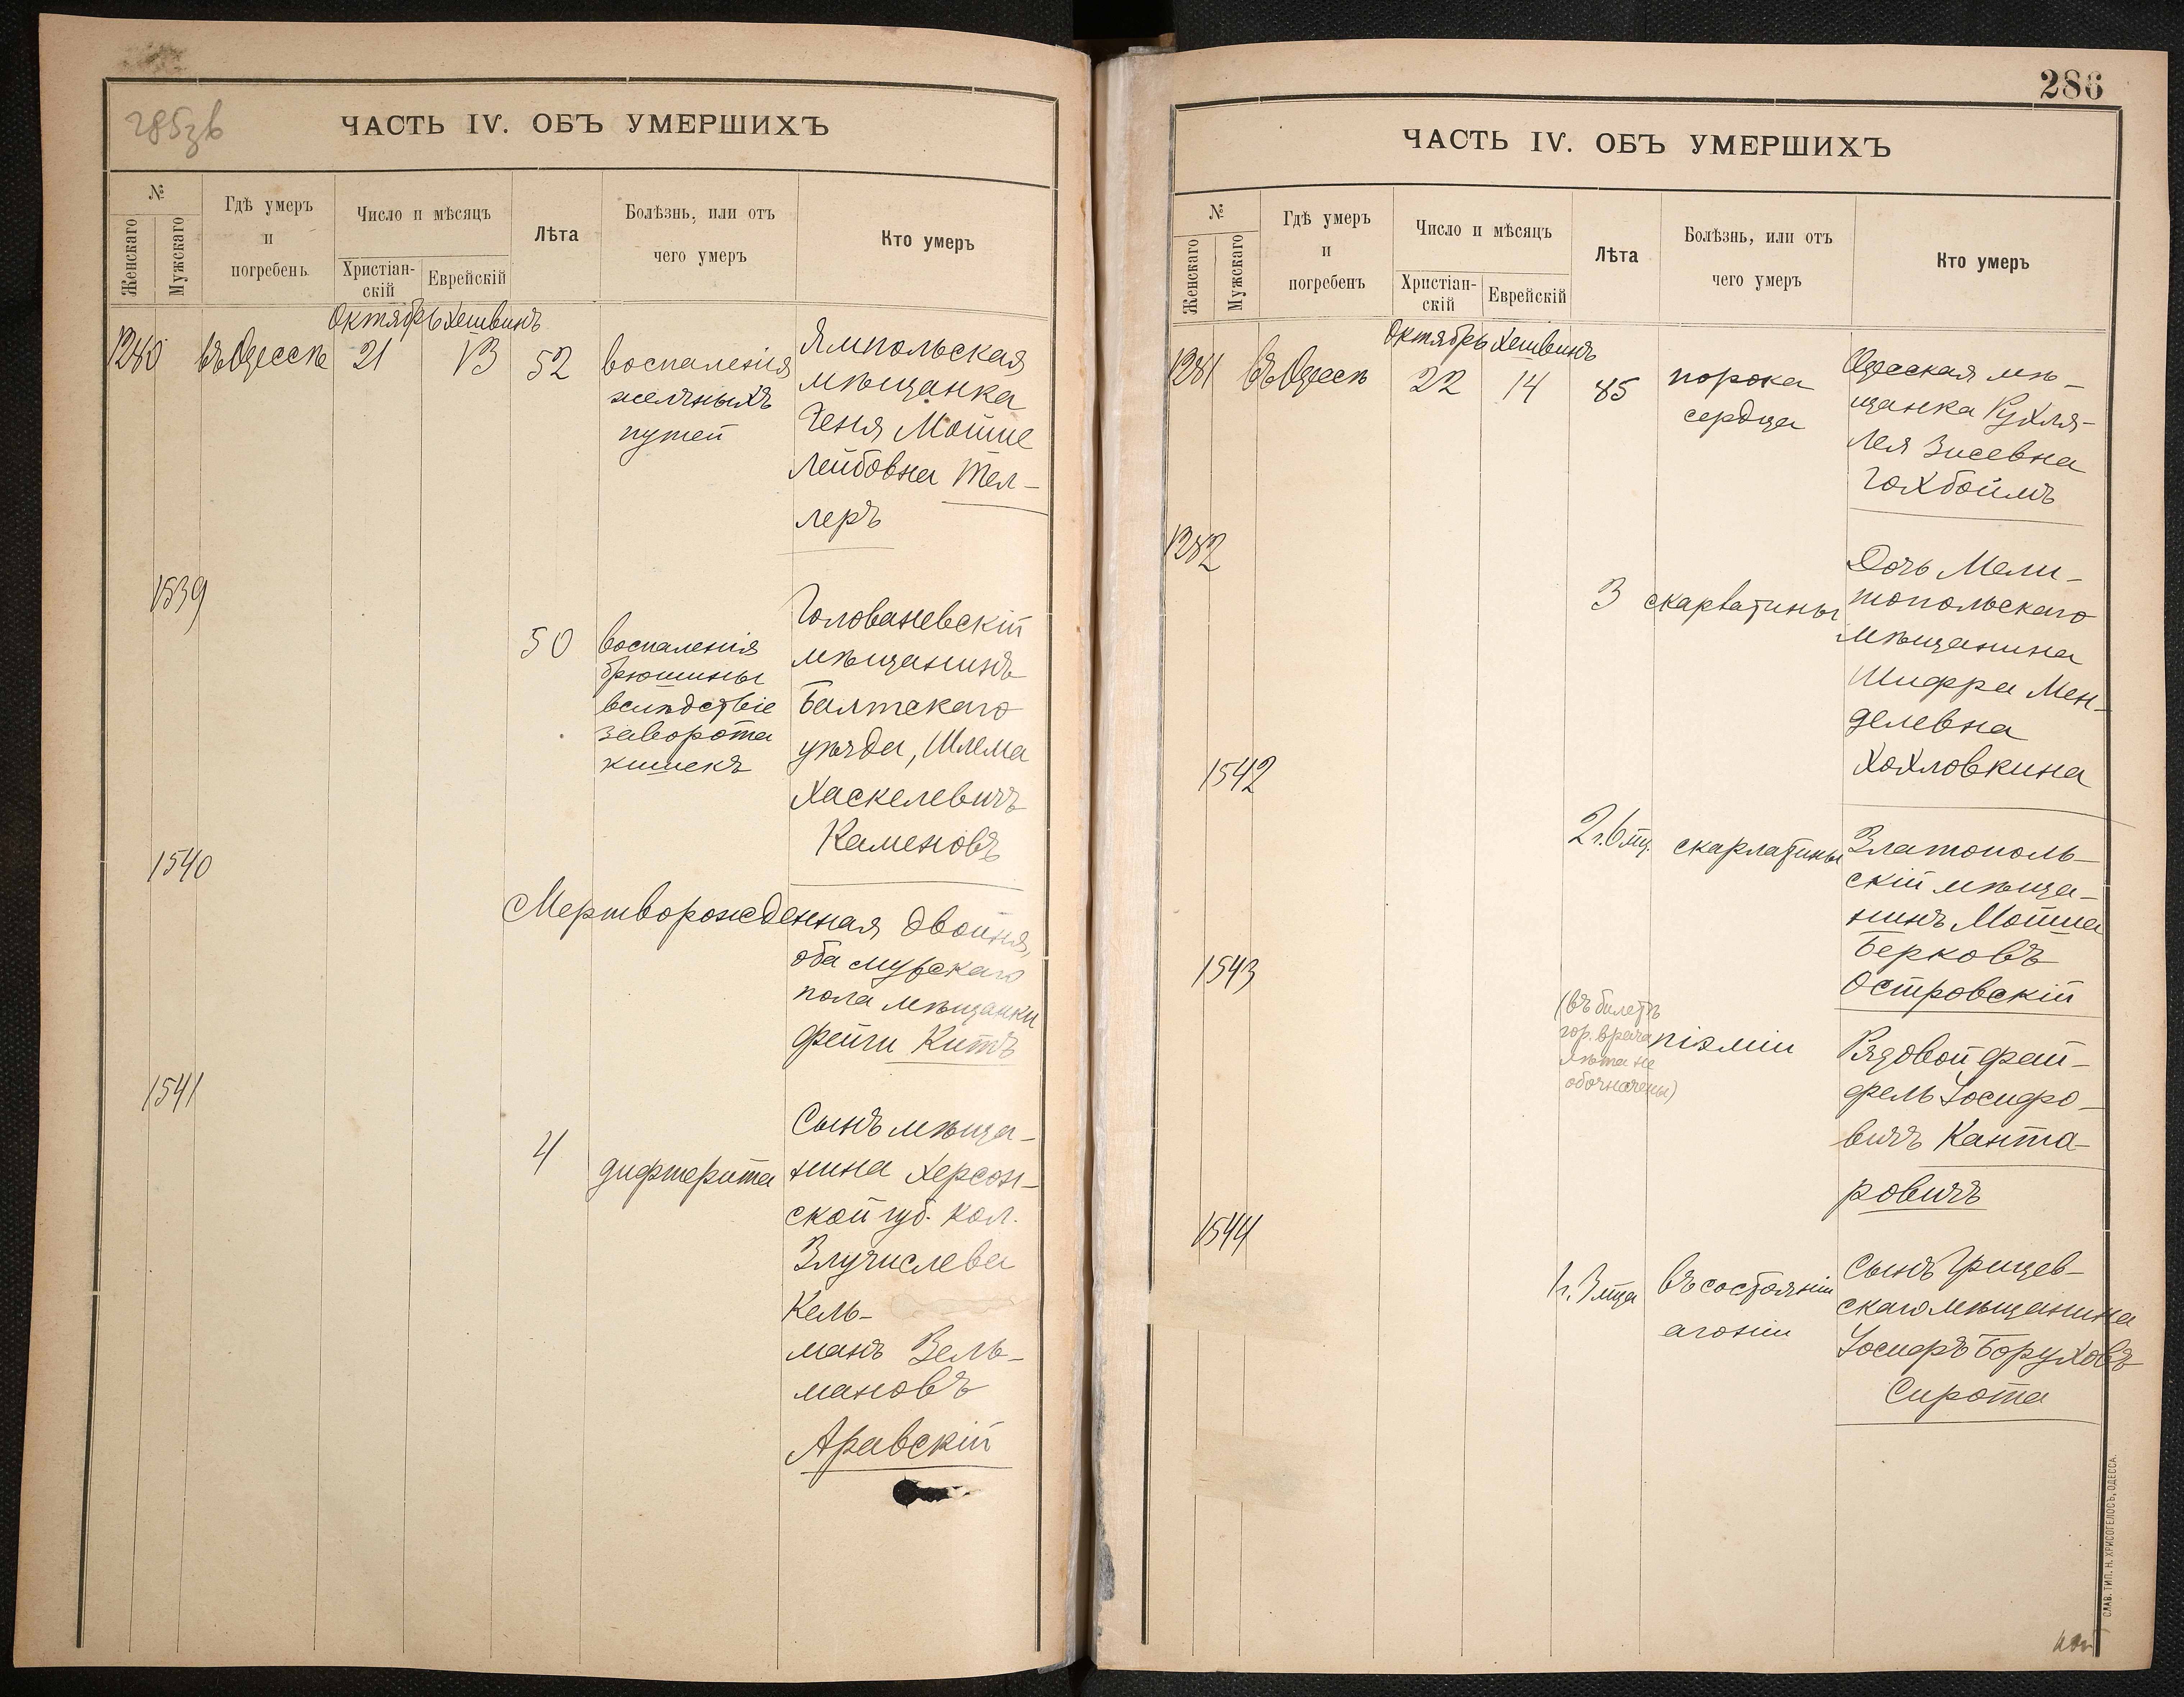 285зв
ЧАСТЬ IV. ОБЪ УМЕРШИХЪ
№
Женскаго
Мужскаго
Гдѣ умеръ
и
погребенъ
Число и мѣсяцъ
Христіан-
скій
Еврейскій
Лѣта
Болѣзнь, или отъ
чего умеръ
Кто умеръ
Октябрь Хешвинъ
1280 въ Одессѣ 21 13 52
воспаленія
желчныхъ
путей
Ямпольская
мѣщанка
Геня Мошие
Лейбовна Тел-
леръ
1539
50
воспаленія
брюшины
вслѣдствіе
заворота
кишекъ
Голованевскій
мѣщанинъ
Балтскаго
уѣзда, Шлема
Хаскелевичъ
Каменовъ
1540
Мертворожденная двойня,
оба мужскаго
пола мѣщанки
Фейги Китъ
1541
4
дифтерита
Сынъ мѣща-
нина Херсон-
ской губ. кол.
Кель-
манъ Зель-
мановъ
Аравскій
286
ЧАСТЬ IV. ОБЪ УМЕРШИХЪ
№
Женскаго
Мужскаго
Гдѣ умеръ
и
погребенъ
Число и мѣсяцъ
Христіан-
скій
Еврейскій
Лѣта
Болѣзнь, или отъ
чего умеръ
Кто умеръ
Октябрь Хешвинъ
1281 въ Одессѣ 22 14 85
порока
сердца
Одесская мѣ-
щанка Рухля-
Лея Зисевна
Гохбоймъ
1282
3 скарлатины
Дочь Мели-
топольскаго
мѣщанина
Шифра Мен-
делевна
Хохловкина
1542
2 г. 6 мц. скарлатины
Златополь-
скій мѣща-
нинъ Мошка
Берковъ
Островскій
1543
(въ билетѣ
гор. врача
лѣта не
обозначены)
піэміи
Рядовой Фай-
фель Іосифо-
вичъ Канта-
ровичъ
1544
1 г. 3 мца
въ состояніи
агоніи
Сынъ Грицев-
скаго мѣщанина
Іосифъ Боруховъ
Сирота
СЛАВ. ТИП. Н. ХРИСОГЕЛОСЪ, ОДЕССА.